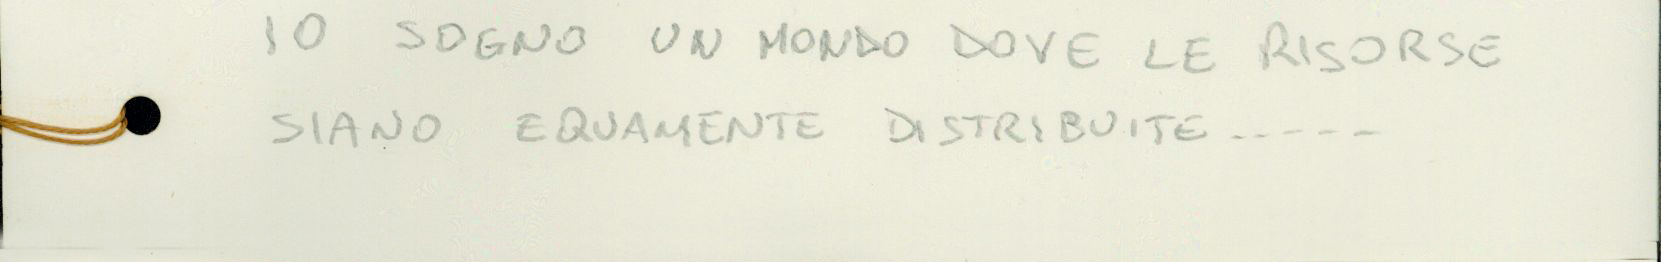 IO SOGNO UN MONDO DOVE LE RISORSE
SIANO EQUAMENTE DISTRIBUITE.-----